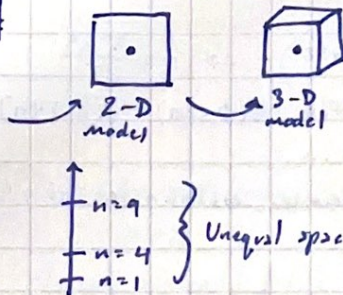 2-D
model
3-D
model
n=9
n=4
n=1
Unequal